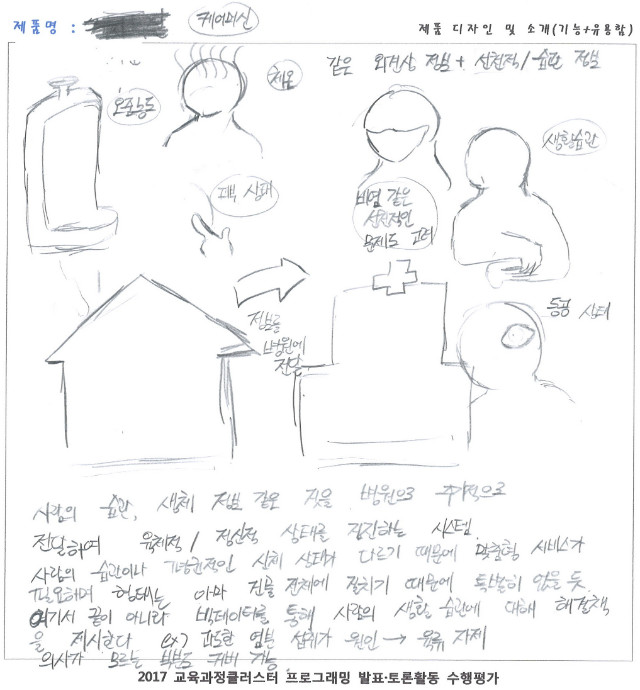 제품명 :
케어머신
제품 디자인 및 소개(기능+유용함)
같은 외견상 정보 + 선천적/습관 정보
체온
오줌농도
생활습관
피부 상태
비염 같은
선천적인
문제도 고려
동공 상태
정보를
병원에
전달
사람의 습관, 생체 정보 같은 것을 병원으로 주기적으로
전달하여 육체적/정신적 상태를 진단하는 시스템.
사람의 습관이나 기본적인 신체 상태가 다르기 때문에 맞춤형 서비스가
필요하며 형태는 아마 건물 전체에 걸치기 때문에 특별히 없을 듯.
여기서 끝이 아니라 빅데이터를 통해 사람의 생활 습관에 대해 해결책
을 제시한다 ex) 과도한 염분 섭취가 원인 → 육류 자제
의사가 모르는 부분도 커버 가능
2017 교육과정클러스터 프로그래밍 발표·토론활동 수행평가